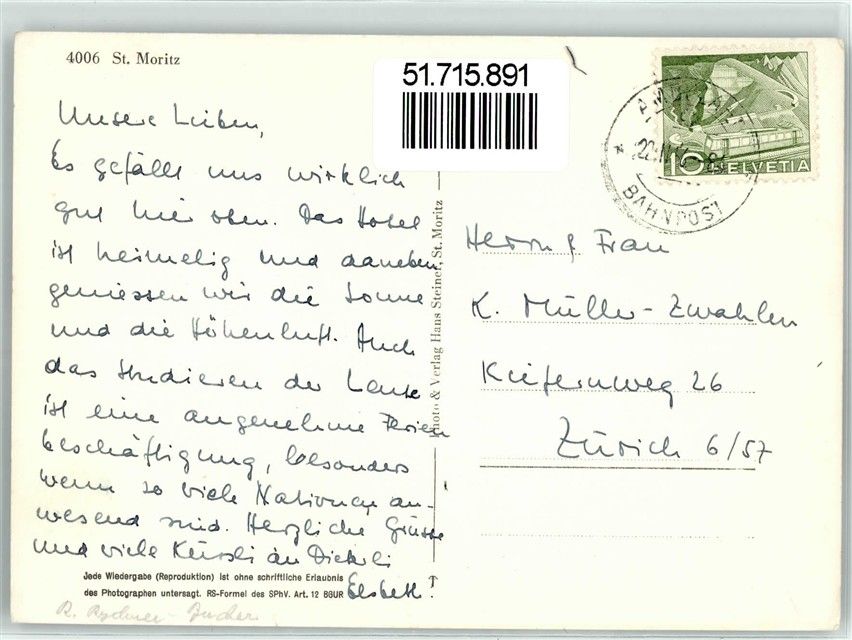 4006 St. Moritz
51.715.891
Unsere Lieben,
Es gefällt uns wirklich
gut hier oben. Das Hotel
ist heimelig und daneben
geniessen wir die Sonne
und die Höhenluft. Auch
das studieren der Leute
ist eine angenehme Ferien
beschäftigung, besonders
wenn so viele Nationen an-
wesend sind. Herzliche Grüsse
und viele Küssli an Dieterli
Elsbeth.
Jede Wiedergabe (Reproduktion) ist ohne schriftliche Erlaubnis
des Photographen untersagt. RS-Formel des SPhV. Art. 12 BGUR
R.
Photo & Verlag Hans Steiner, St. Moritz
10 HELVETIA
AMBULANT
BAHNPOST
Herrn & Frau
K. Müller-Zwahlen
Kiefernweg 26
Zürich 6/57